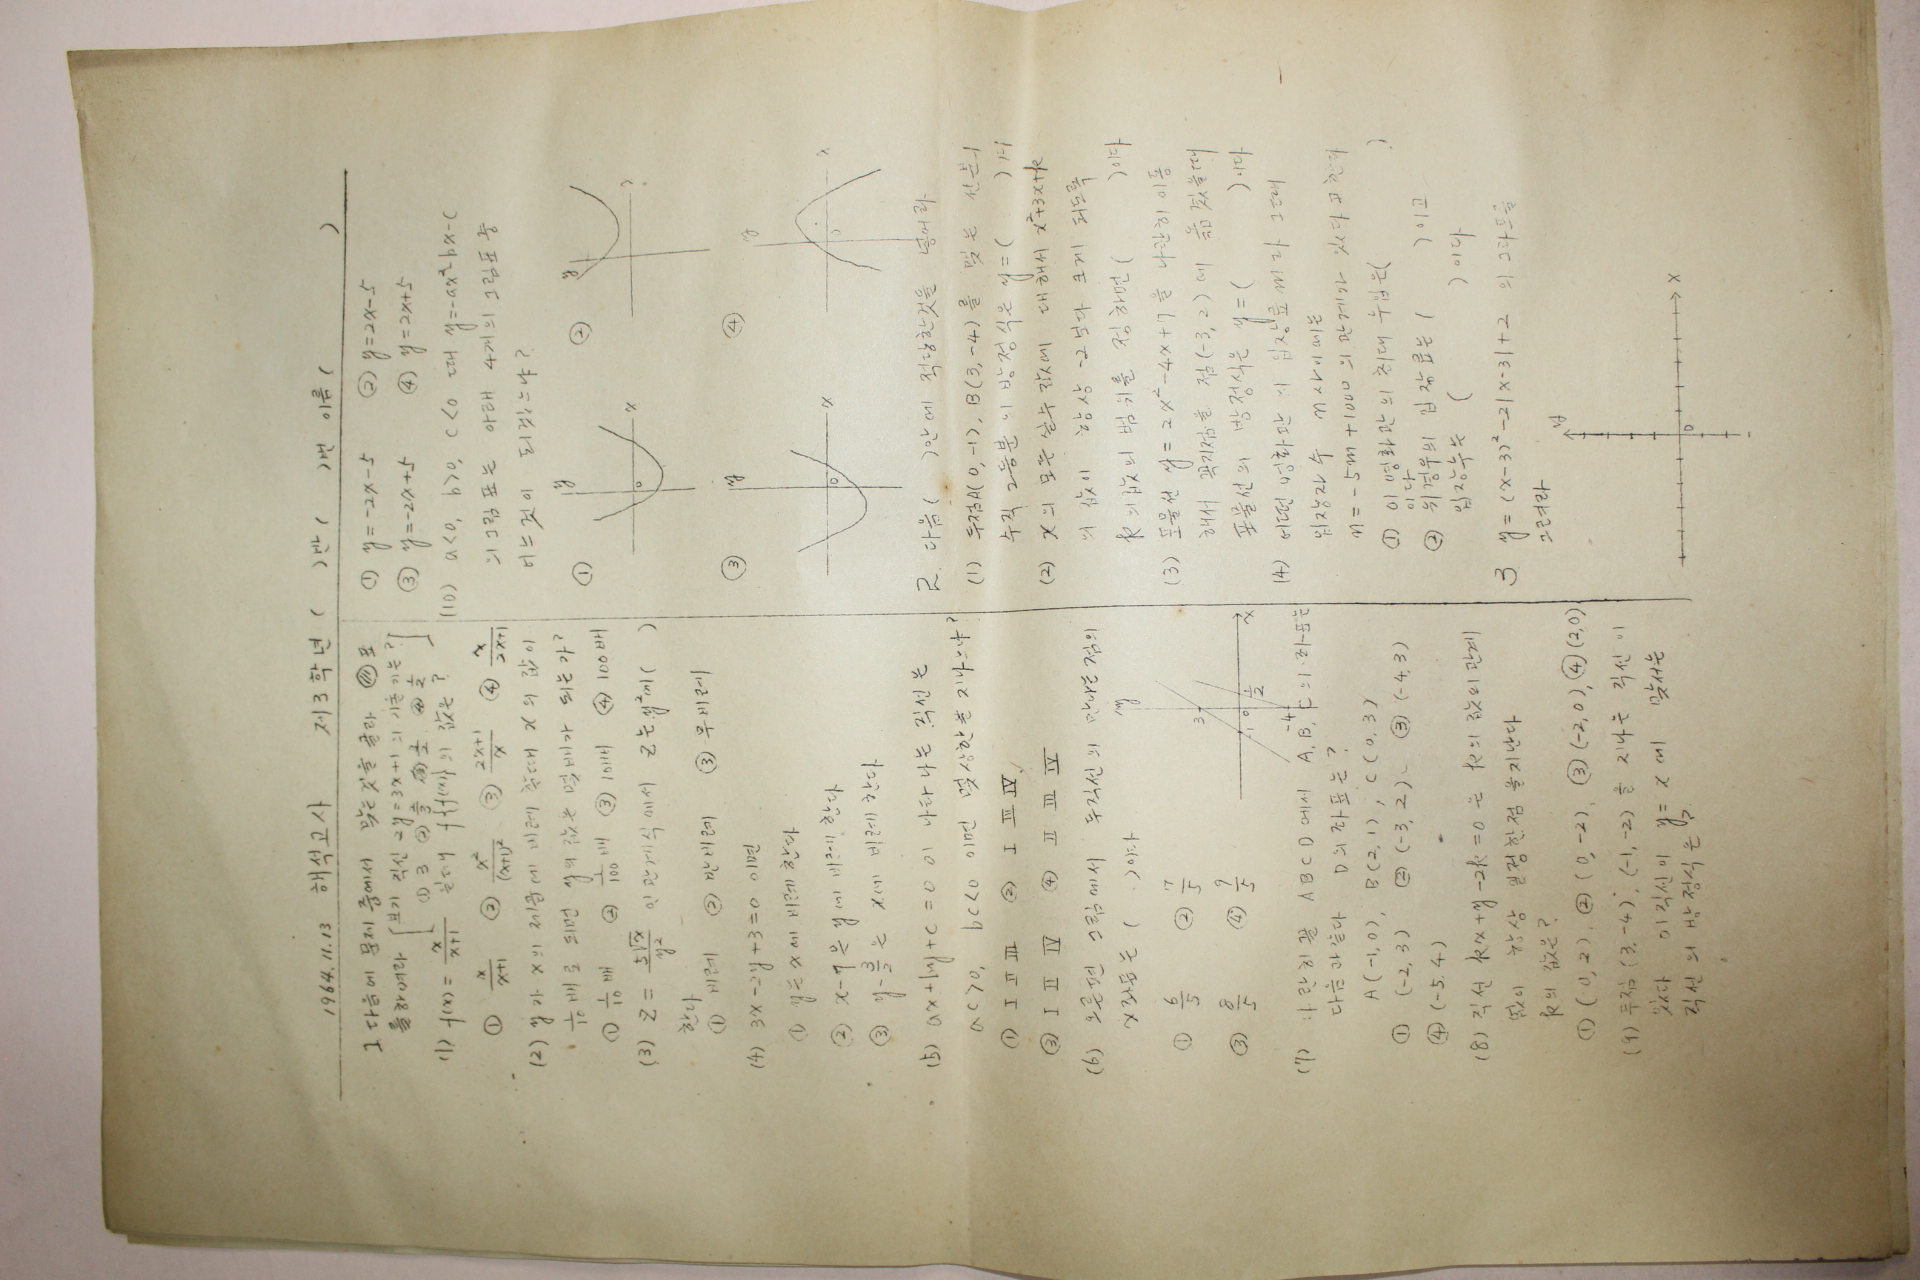 1964.11.13 해석고사 제3학년 ( )반 ( )번 이름 ( )
1 다음에 문제 중에서 맞는것을 골라 표
를하여라 [보기 직선 2y=3x+1 의 기울기는?
① 3 ② 3/2 ③ 1/2 ④ 1/2]
(1) f(x) = x/x+1 일때 f{f(x)}의 값은?
① x/x+1 ② x²/(x+1)² ③ 2x+1/x ④ x/2x+1
(2) y가 x의 제곱에 비례 할때 x의 값이
1/10배로 되면 y의 값은 몇배가 되는가?
① 1/10배 ② 1/100배 ③ 10배 ④ 100배
(3) Z = 5√x/y² 인 관계식에서 Z는 y²에 ( )
한다
① 비례 ② 반비례 ③ 무비례
(4) 3x-2y+3=0 이면
① y는 x에 비례한다
② x-1은 y에 비례 한다
③ y-3/2은 x에 비례 한다
(5) ax+by+c=0 이 나타나는 직선은
ac>0, bc<0 이면 몇상한을 지나는나?
① I II III ② I III IV
③ I II IV ④ II III IV
(6) 오른편 그림에서 두직선의 만나는 점의
x좌표는 ( )이다
① 6/5 ② 7/5
③ 8/5 ④ 9/5
y
3
-1 0 1/2 x
-4
(7) 나란히꼴 ABCD에서 A, B, C의 좌표는
다음과 같다 D의 좌표는?
A(-1,0), B(2,1), C(0,3)
① (-2,3) ② (-3,2) ③ (-4,3)
④ (-5,4)
(8) 직선 kx+y-2k=0 은 k의 값의 관계
없이 항상 일정한점을지난다
k의 값은?
① (0,2), ② (0,-2), ③ (-2,0), ④ (2,0)
(9) 두점 (3,-4), (-1,-2)을 지나는 직선이
있다 이직선이 y=x에 맞서는
직선의 방정식은?
① y=-2x-5 ② y=2x-5
③ y=-2x+5 ④ y=2x+5
(10) a<0, b>0, c<0 때 y=-ax²bx-c
의그림표는 아래 4개의 그림표중
어느것이 되겠느냐?
① y 0 x ② y x
③ y 0 x ④ y 0 x
2. 다음 ( )안에 적당한것을 넣어라
(1) 두점A(0,-1), B(3,-4)를 맺는 선분의
수직 2등분의 방정식은 y=( )이
(2) x의 모든 실수값에 대해서 x²+3x+k
의 값이 항상 -2보다 크게 되도록
k의 값의 범위를 정하면 ( )이다
(3) 포물선 y=2x²-4x+7을 나란히 이동
해서 꼭지점을 점(-3,2)에 옮겼을때
포물선의 방정식은 y=( )이다
(4) 어떤 영화관의 입장료 m과 그때
입장자수 n사이에는
n=-5m+1000의 관계가 있다고한다
① 이 영화관의 최대 수입은( )
이다
② 위경우의 입장료는 ( )이고
입장수는 ( )이다
3 y=(x-3)²-2|x-3|+2 의 그라프를
그려라
y
0 x